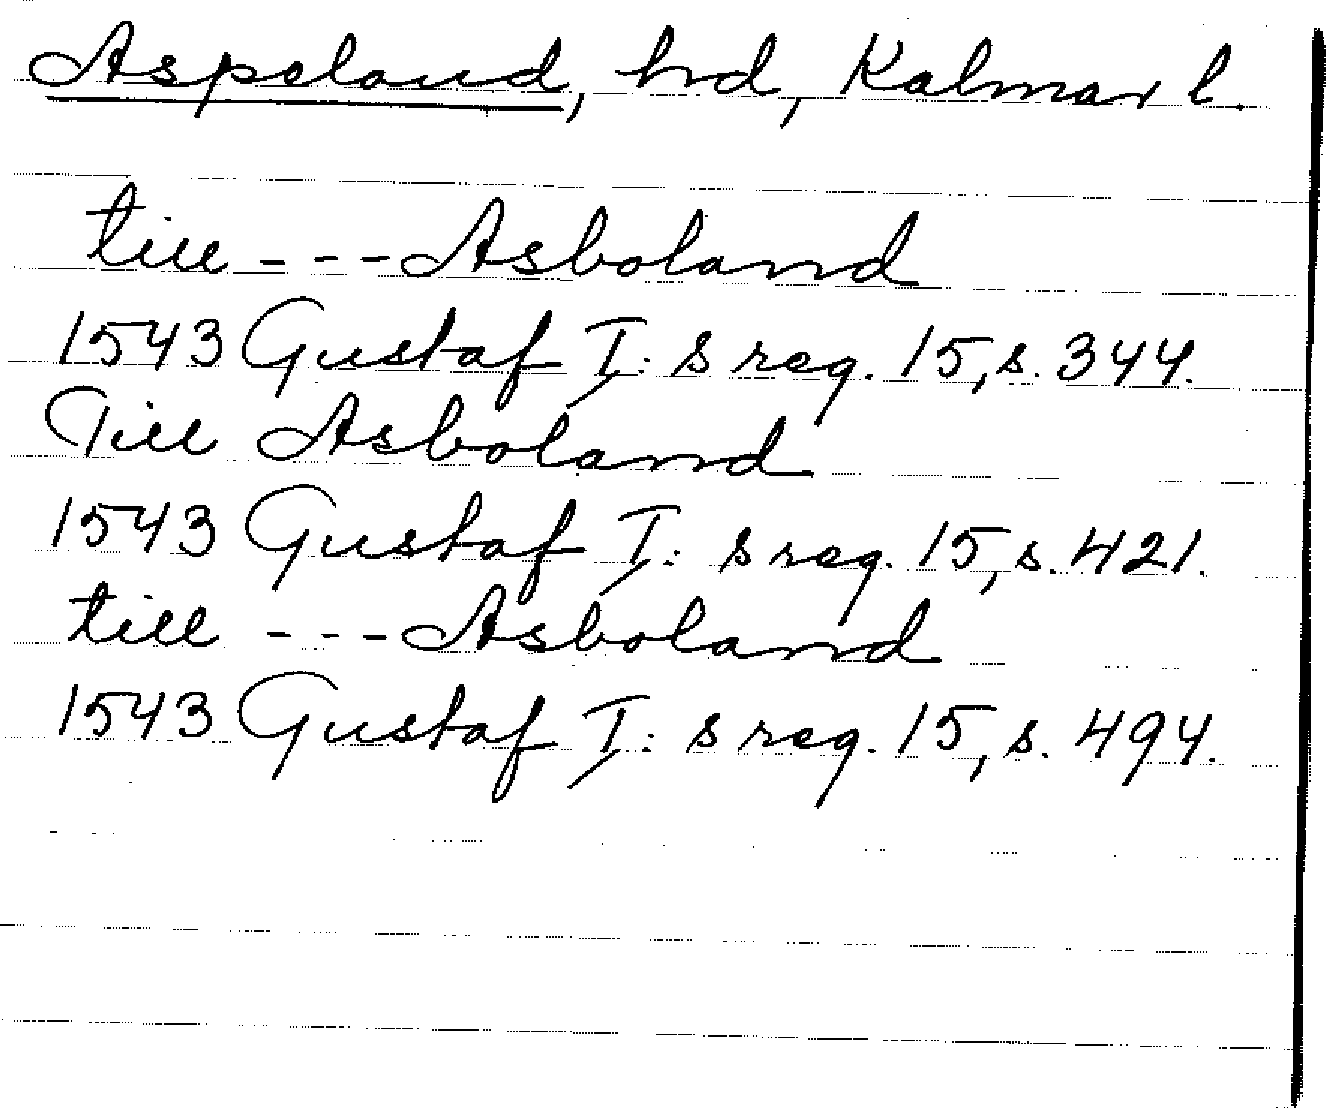 Aspeland, hd, Kalmar l.
till - - - Asboland
1543 Gustaf I: s reg. 15, s. 344.
Till Asboland
1543 Gustaf I: s reg. 15, s. 421.
till - - - Asboland
1543 Gustaf I: s reg. 15, s. 494.